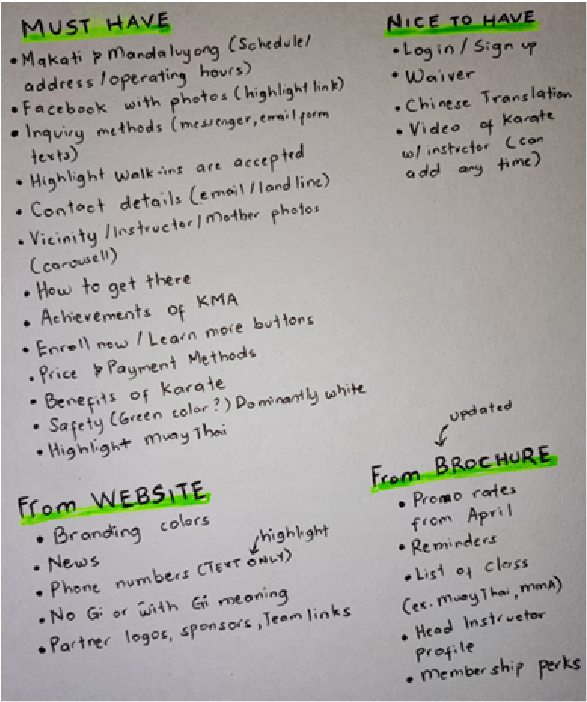 MUST HAVE
• Makati & Mandaluyong (Schedule/
address/operating hours)
• Facebook with photos (highlight link)
• Inquiry methods (messenger, email form
texts)
• Highlight walk-ins are accepted
• Contact details (email/landline)
• Vicinity/Instructor/Mother photos
(carousell)
• How to get there
• Achievements of KMA
• Enroll now/Learn more buttons
• Price & Payment Methods
• Benefits of Karate
• Safety (Green color?) Dominantly white
• Highlight Muay Thai
NICE TO HAVE
• Log in / Sign up
• Waiver
• Chinese Translation
• Video of Karate
w/ instrctor (can
add any time)
From WEBSITE
• Branding colors
• News
highlight
• Phone numbers (TEXT ONLY)
• No Gi or with Gi meaning
• Partner logos, sponsors, Team links
updated
From BROCHURE
• Promo rates
from April
• Reminders
• List of Class
(ex. Muay Thai, MMA)
• Head Instructor
profile
• Membership perks